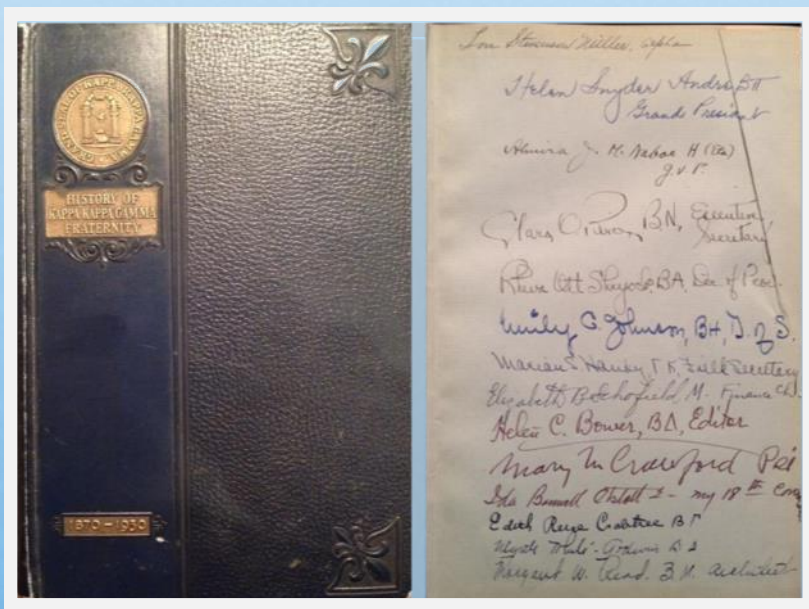 GRAND SEAL OF KAPPA KAPPA GAMMA
HISTORY OF
KAPPA KAPPA GAMMA
FRATERNITY
1870-1930
Lou Stevenson Miller, Alpha
Helen Snyder Andres BΠ
Grand President
Almira J. M. H (Eta)
G.V.P.
Clara O. Pierce, B.N., Executive
Secretary
Rheva Ott Shryock, BA, Dir. of Prov.
Emily C. Johnson, BH, D. of S.
Marian S. Handy, ΓK, Field Secretary
Elizabeth B. Schofield M. Finance Ch.
Helen C. Bower, BΔ, Editor
Mary M Crawford Psi
my 18th
Edith Reese Crabtree BΓ
Margaret W. Read. B.M. Architect